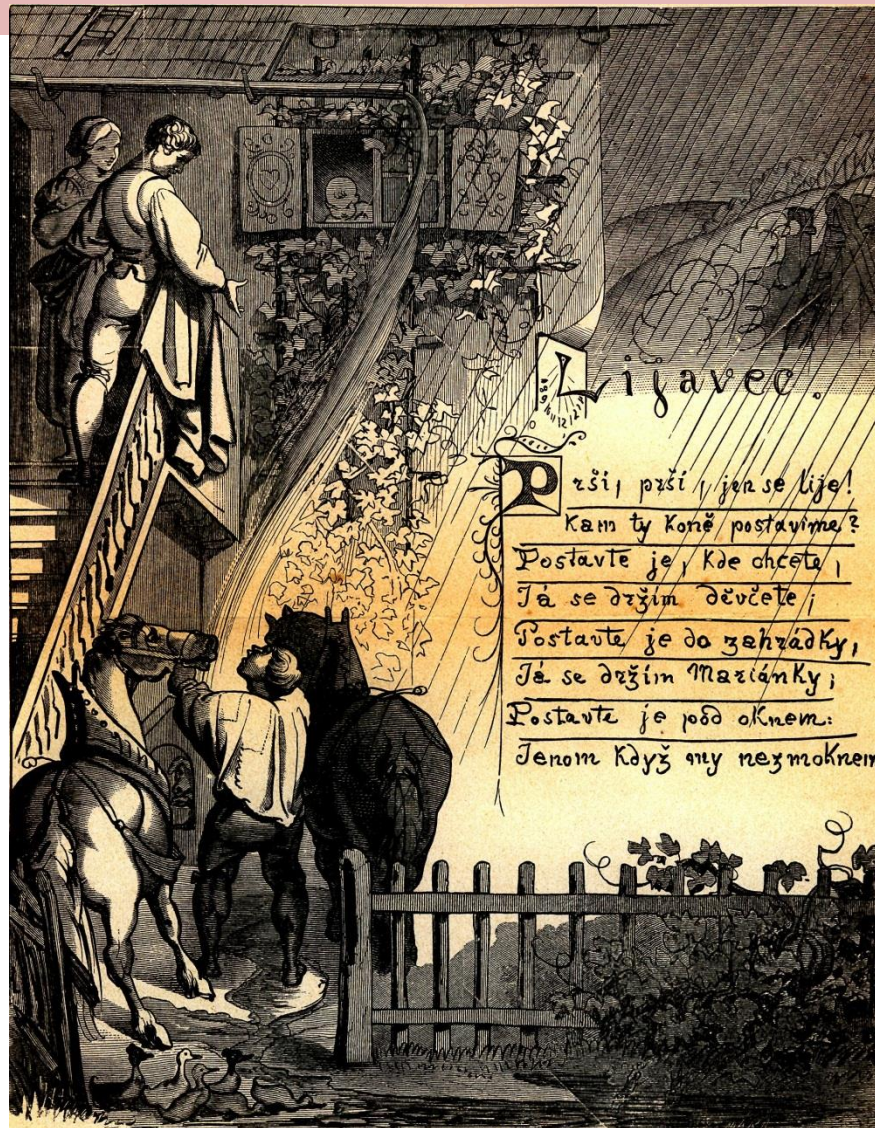 Lijavec.
Prší, prší, jen se lije!
Kam ty Koně postavíme?
Postavte je, Kde chcete,
Já se držím děvčete;
Postavte je do zahrádky,
Já se držím Mariánky;
Postavte je pod oknem:
Jenom Když my nezmoknem